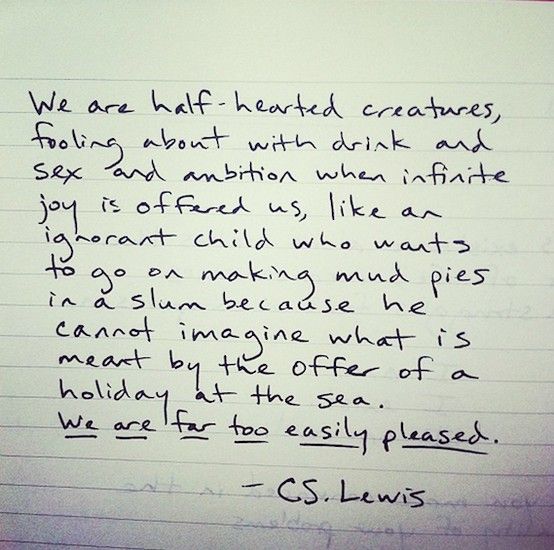 We are half-hearted creatures,
fooling about with drink and
sex and ambition when infinite
joy is offered us, like an
ignorant child who wants
to go on making mud pies
in a slum because he
cannot imagine what is
meant by the offer of a
holiday at the sea.
We are far too easily pleased.
- C.S. Lewis